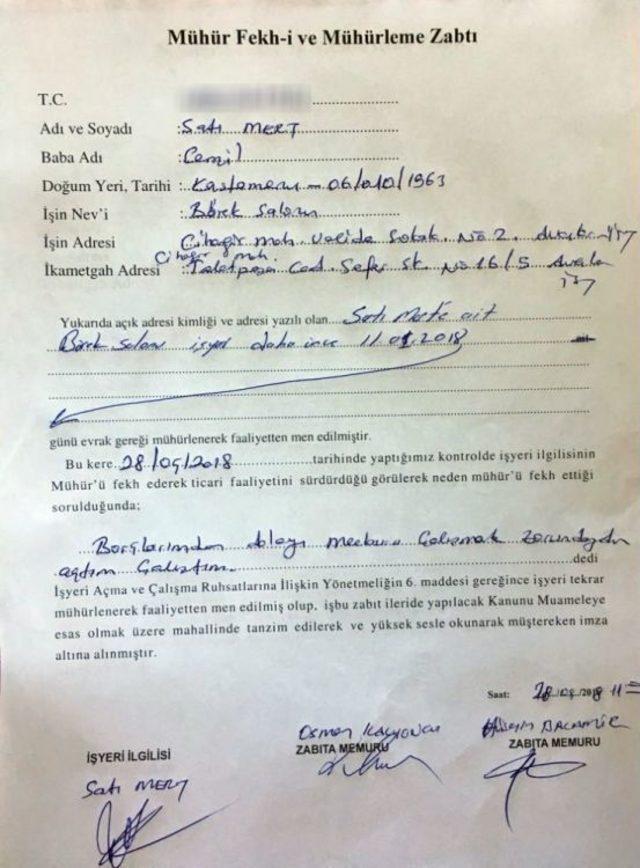 Mühür Fekh-i ve Mühürleme Zabtı
T.C.
Adı ve Soyadı : Satı MERT
Baba Adı : Cemil
Doğum Yeri, Tarihi : Kastamonu - 06/010/1963
İşin Nev'i : Börek Salonu
İşin Adresi : Cihagir mah. Valide Sokak. No 2.
Cihagir mah.
İkametgah Adresi : Cad. Sefer Sk. No 16/5
Yukarıda açık adresi kimliği ve adresi yazılı olan Satı Mert'e ait
Börek Salonu işyeri daha önce 11.09.2018
günü evrak gereği mühürlenerek faaliyetten men edilmiştir.
Bu kere 28/09/2018 tarihinde yaptığımız kontrolde işyeri ilgilisinin
Mühür'ü fekh ederek ticari faaliyetini sürdürdüğü görülerek neden mühür'ü fekh ettiği
sorulduğunda;
Borçlarımdan dolayı mecburu Çalışmak zorundaydım
açtım Çalıştım. dedi
İşyeri Açma ve Çalışma Ruhsatlarına İlişkin Yönetmeliğin 6. maddesi gereğince işyeri tekrar
mühürlenerek faaliyetten men edilmiş olup, işbu zabıt ileride yapılacak Kanunu Muameleye
esas olmak üzere mahallinde tanzim edilerek ve yüksek sesle okunarak müştereken imza
altına alınmıştır.
Saat: 28/09/2018 11
Osman Kalyoncu Hüseyin BALAMİR
İŞYERİ İLGİLİSİ ZABITA MEMURU ZABITA MEMURU
Satı MERT